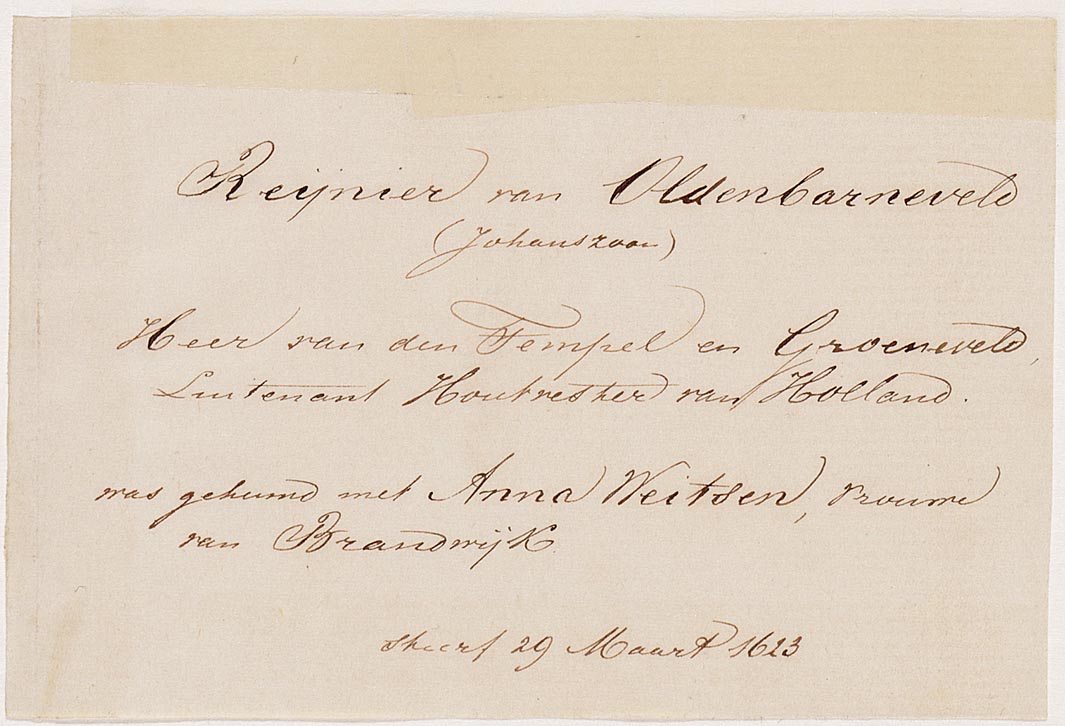 Reijnier van Oldenbarneveld
(Johanszoon)
Heer van den Tempel en Groeneveld,
Luitenant Houtvester van Holland.
was gehuwd met Anna Weitsen, vrouwe
van Brandwijk
stierf 29 Maart 1623